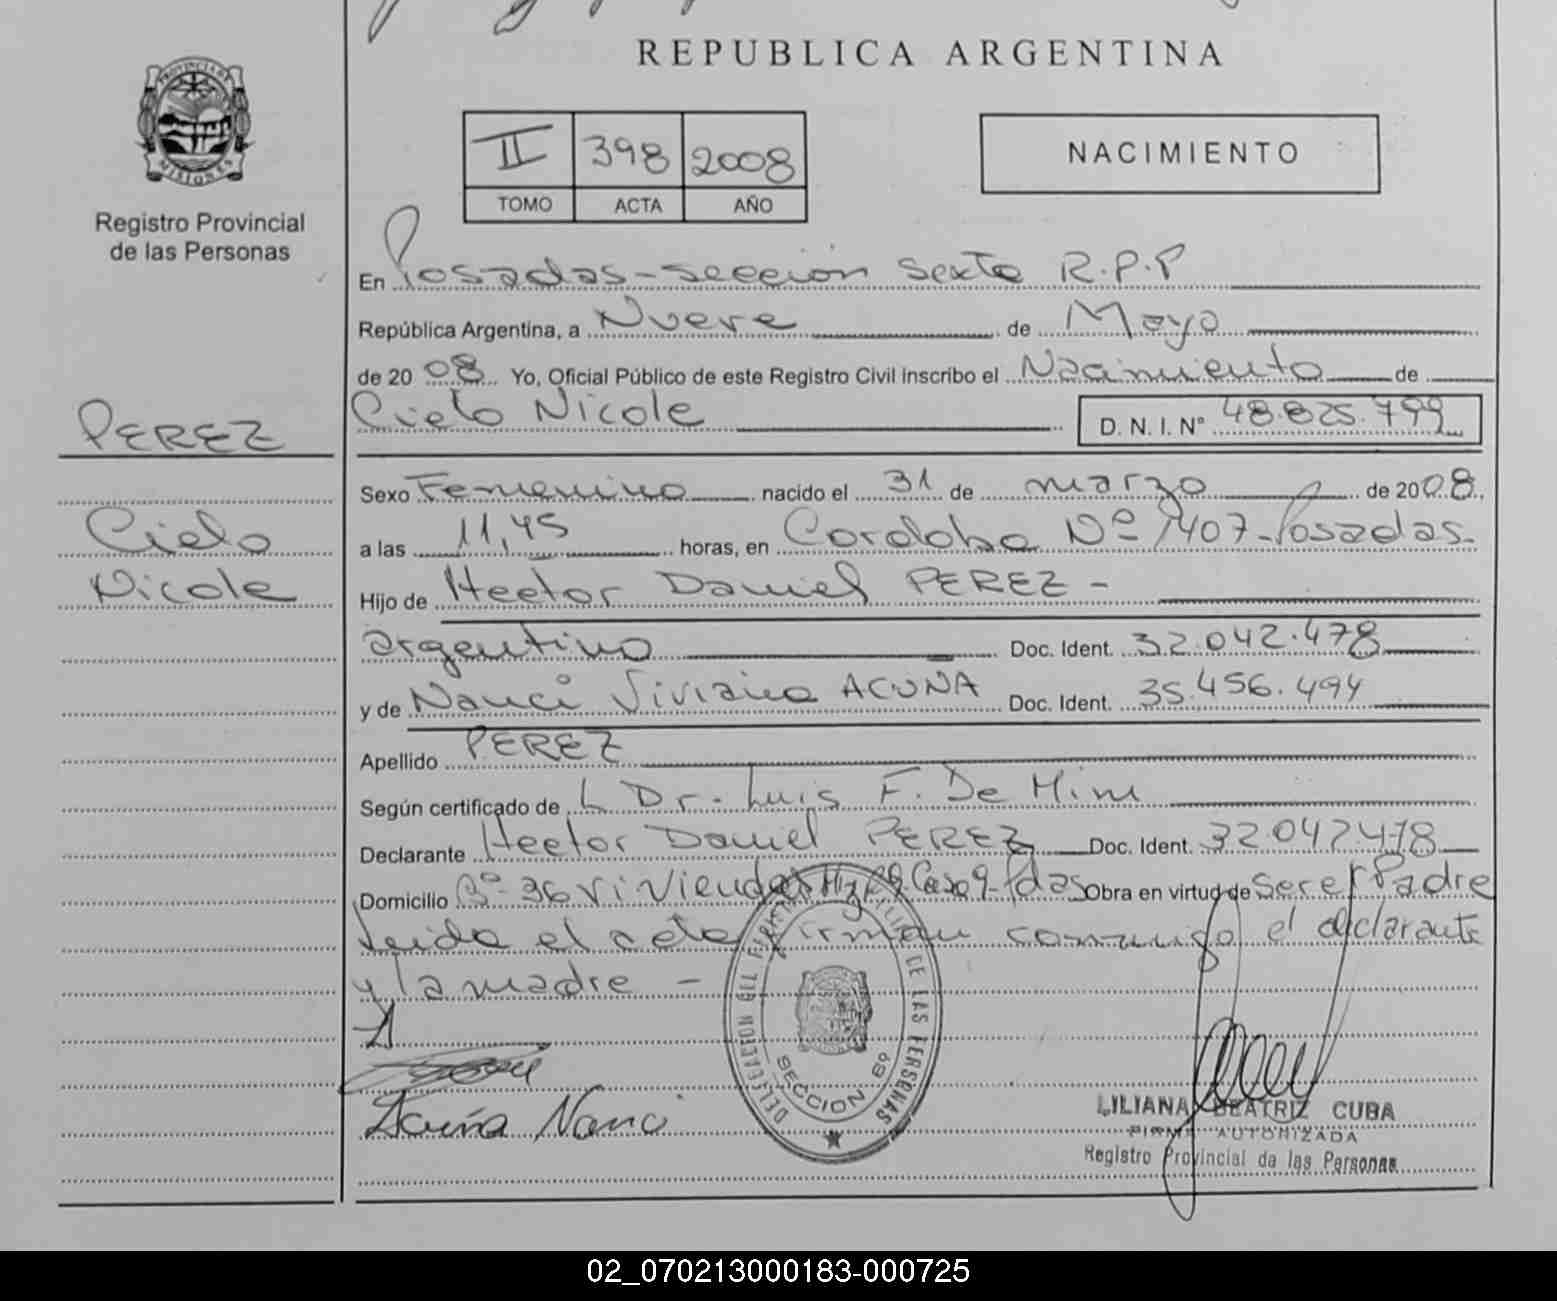 REPUBLICA ARGENTINA
PROVINCIA DE
MISIONES
Registro Provincial
de las Personas
II 398 2008
TOMO ACTA AÑO
NACIMIENTO
En Posadas-sección sexta R.P.P
República Argentina, a Nueve de Mayo
de 2008. Yo, Oficial Público de este Registro Civil inscribo el Nacimiento de
Cielo Nicole D. N. I. Nº 48.825.799
PEREZ
Cielo
Nicole
Sexo Femenino nacido el 31 de marzo de 2008.
a las 11,45 horas, en Cordoba Nº 1407-Posadas-
Hijo de Hector Daniel PEREZ -
argentino Doc. Ident. 32.042.478
y de Nanci Viviana ACUÑA Doc. Ident. 35.456.494
Apellido PEREZ
Según certificado de L Dr. Luis F. De
Declarante Hector Daniel PEREZ Doc. Ident. 32.042.478
Domicilio Bº 36 Viviendas Casa 9-Pdas Obra en virtud de ser el Padre
leida el acta firman conmigo el declarante
y la madre -
DELEGACION DEL REGISTRO DE LAS PERSONAS
SECCION 6º
Nanci
LILIANA BEATRIZ CUBA
FIRMA AUTORIZADA
Registro Provincial de las Personas
02_070213000183-000725